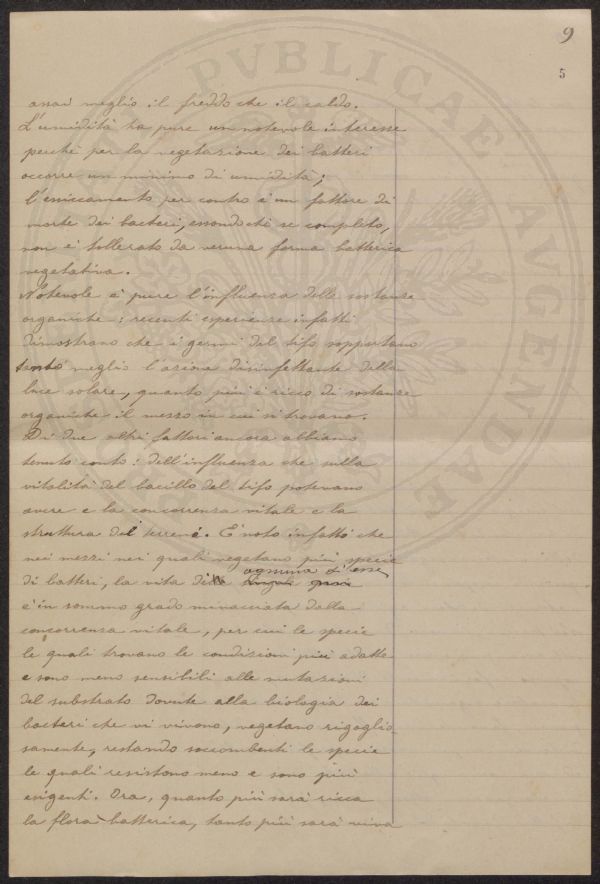 9
5
assai meglio il freddo che il caldo.
L'umidità ha pure un notevole interesse
perchè per la vegetazione dei batteri
occorre un minimo di umidità;
l'essiccamento per contro è un fattore di
morte dei bacteri, essondochè se completo,
non è tollerato da veruna forma batterica
vegetativa.
Notevole è pure l'influenza delle sostanze
organiche: recenti esperienze infatti
dimostrano che i germi del tifo sopportano
tanto meglio l'azione disinfettante della
luce solare, quanto più è ricco di sostanze
organiche il mezzo in cui si trovano.
Di due altri fattori ancora abbiamo
tenuto conto: dell'influenza che sulla
vitalità del bacillo del tifo potevano
avere e la concorrenza vitale e la
struttura del terreno. È noto infatti che
nei mezzi nei quali vegetano più specie
di batteri, la vita di ognuna d'esse
è in sommo grado minacciata dalla
concorrenza vitale, per cui le specie
le quali trovano le condizioni più adatte
e sono meno sensibili alle mutazioni
del substrato dovute alla biologia dei
bacteri che vi vivono, vegetano rigoglio-
samente, restando soccombenti le specie
le quali resistono meno e sono più
esigenti. Ora, quanto più sarà ricca
la flora batterica, tanto più sarà viva
PVBLICAE AVGENDAE